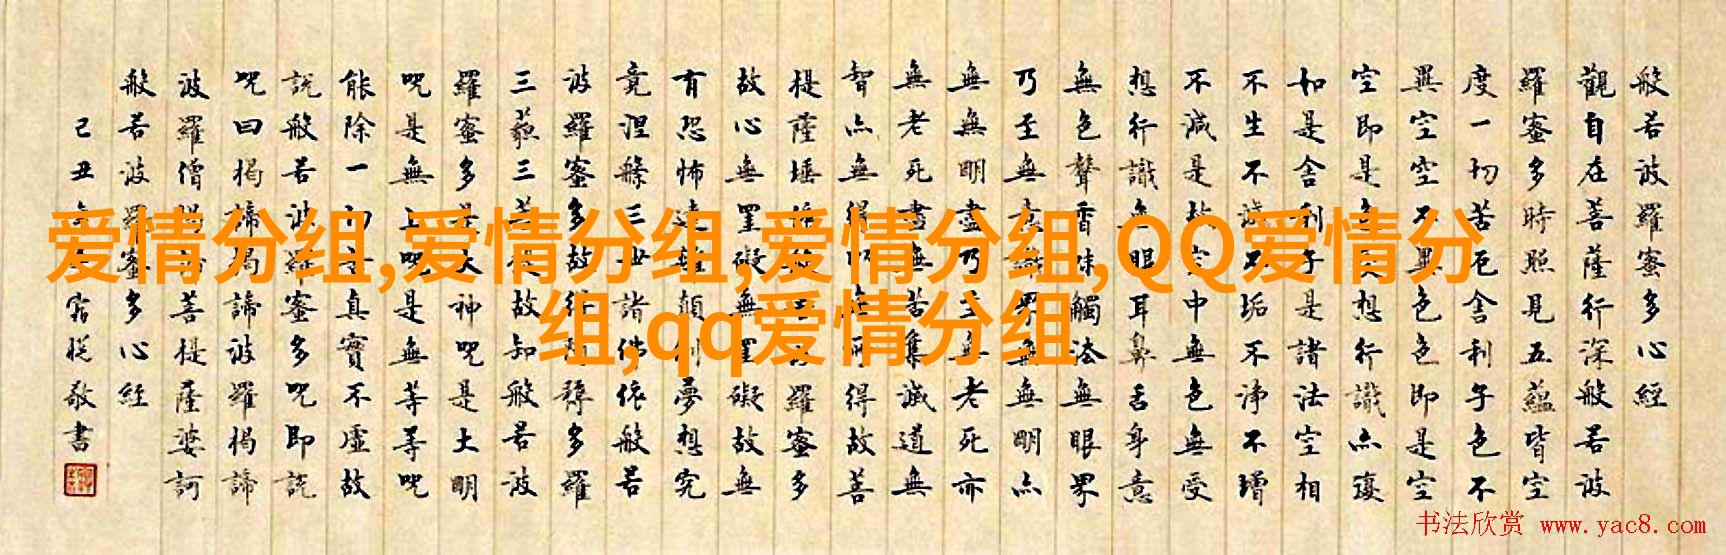 般若波羅蜜多心經
觀自在菩薩行深般若波
羅蜜多時照見五蘊皆空
度一切苦厄舍利子色不
異空空不異色色即是空
空即是色受想行識亦復
如是舍利子是諸法空相
不生不滅不垢不淨不增
不減是故空中無色無受
想行識無眼耳鼻舌身意
無色聲香味觸法無眼界
乃至無意識界無無明亦
無無明盡乃至無老死亦
無老死盡無苦集滅道無
智亦無得以無所得故菩
提薩埵依般若波羅蜜多
故心無罣礙無罣礙故無
有恐怖遠離顛倒夢想究
竟涅槃三世諸佛依般若
波羅蜜多故得阿耨多羅
三藐三菩提故知般若波
羅蜜多是大神呪是大明
呪是無上呪是無等等呪
能除一切苦真實不虛故
說般若波羅蜜多呪即說
呪曰揭諦揭諦波羅揭諦
波羅僧揭諦菩提薩婆訶
般若波羅蜜多心經
己丑年敬書
爱情分组,爱情分组,爱情分组,QQ爱情分
组,qq爱情分组
书法欣赏 www.yac8.com